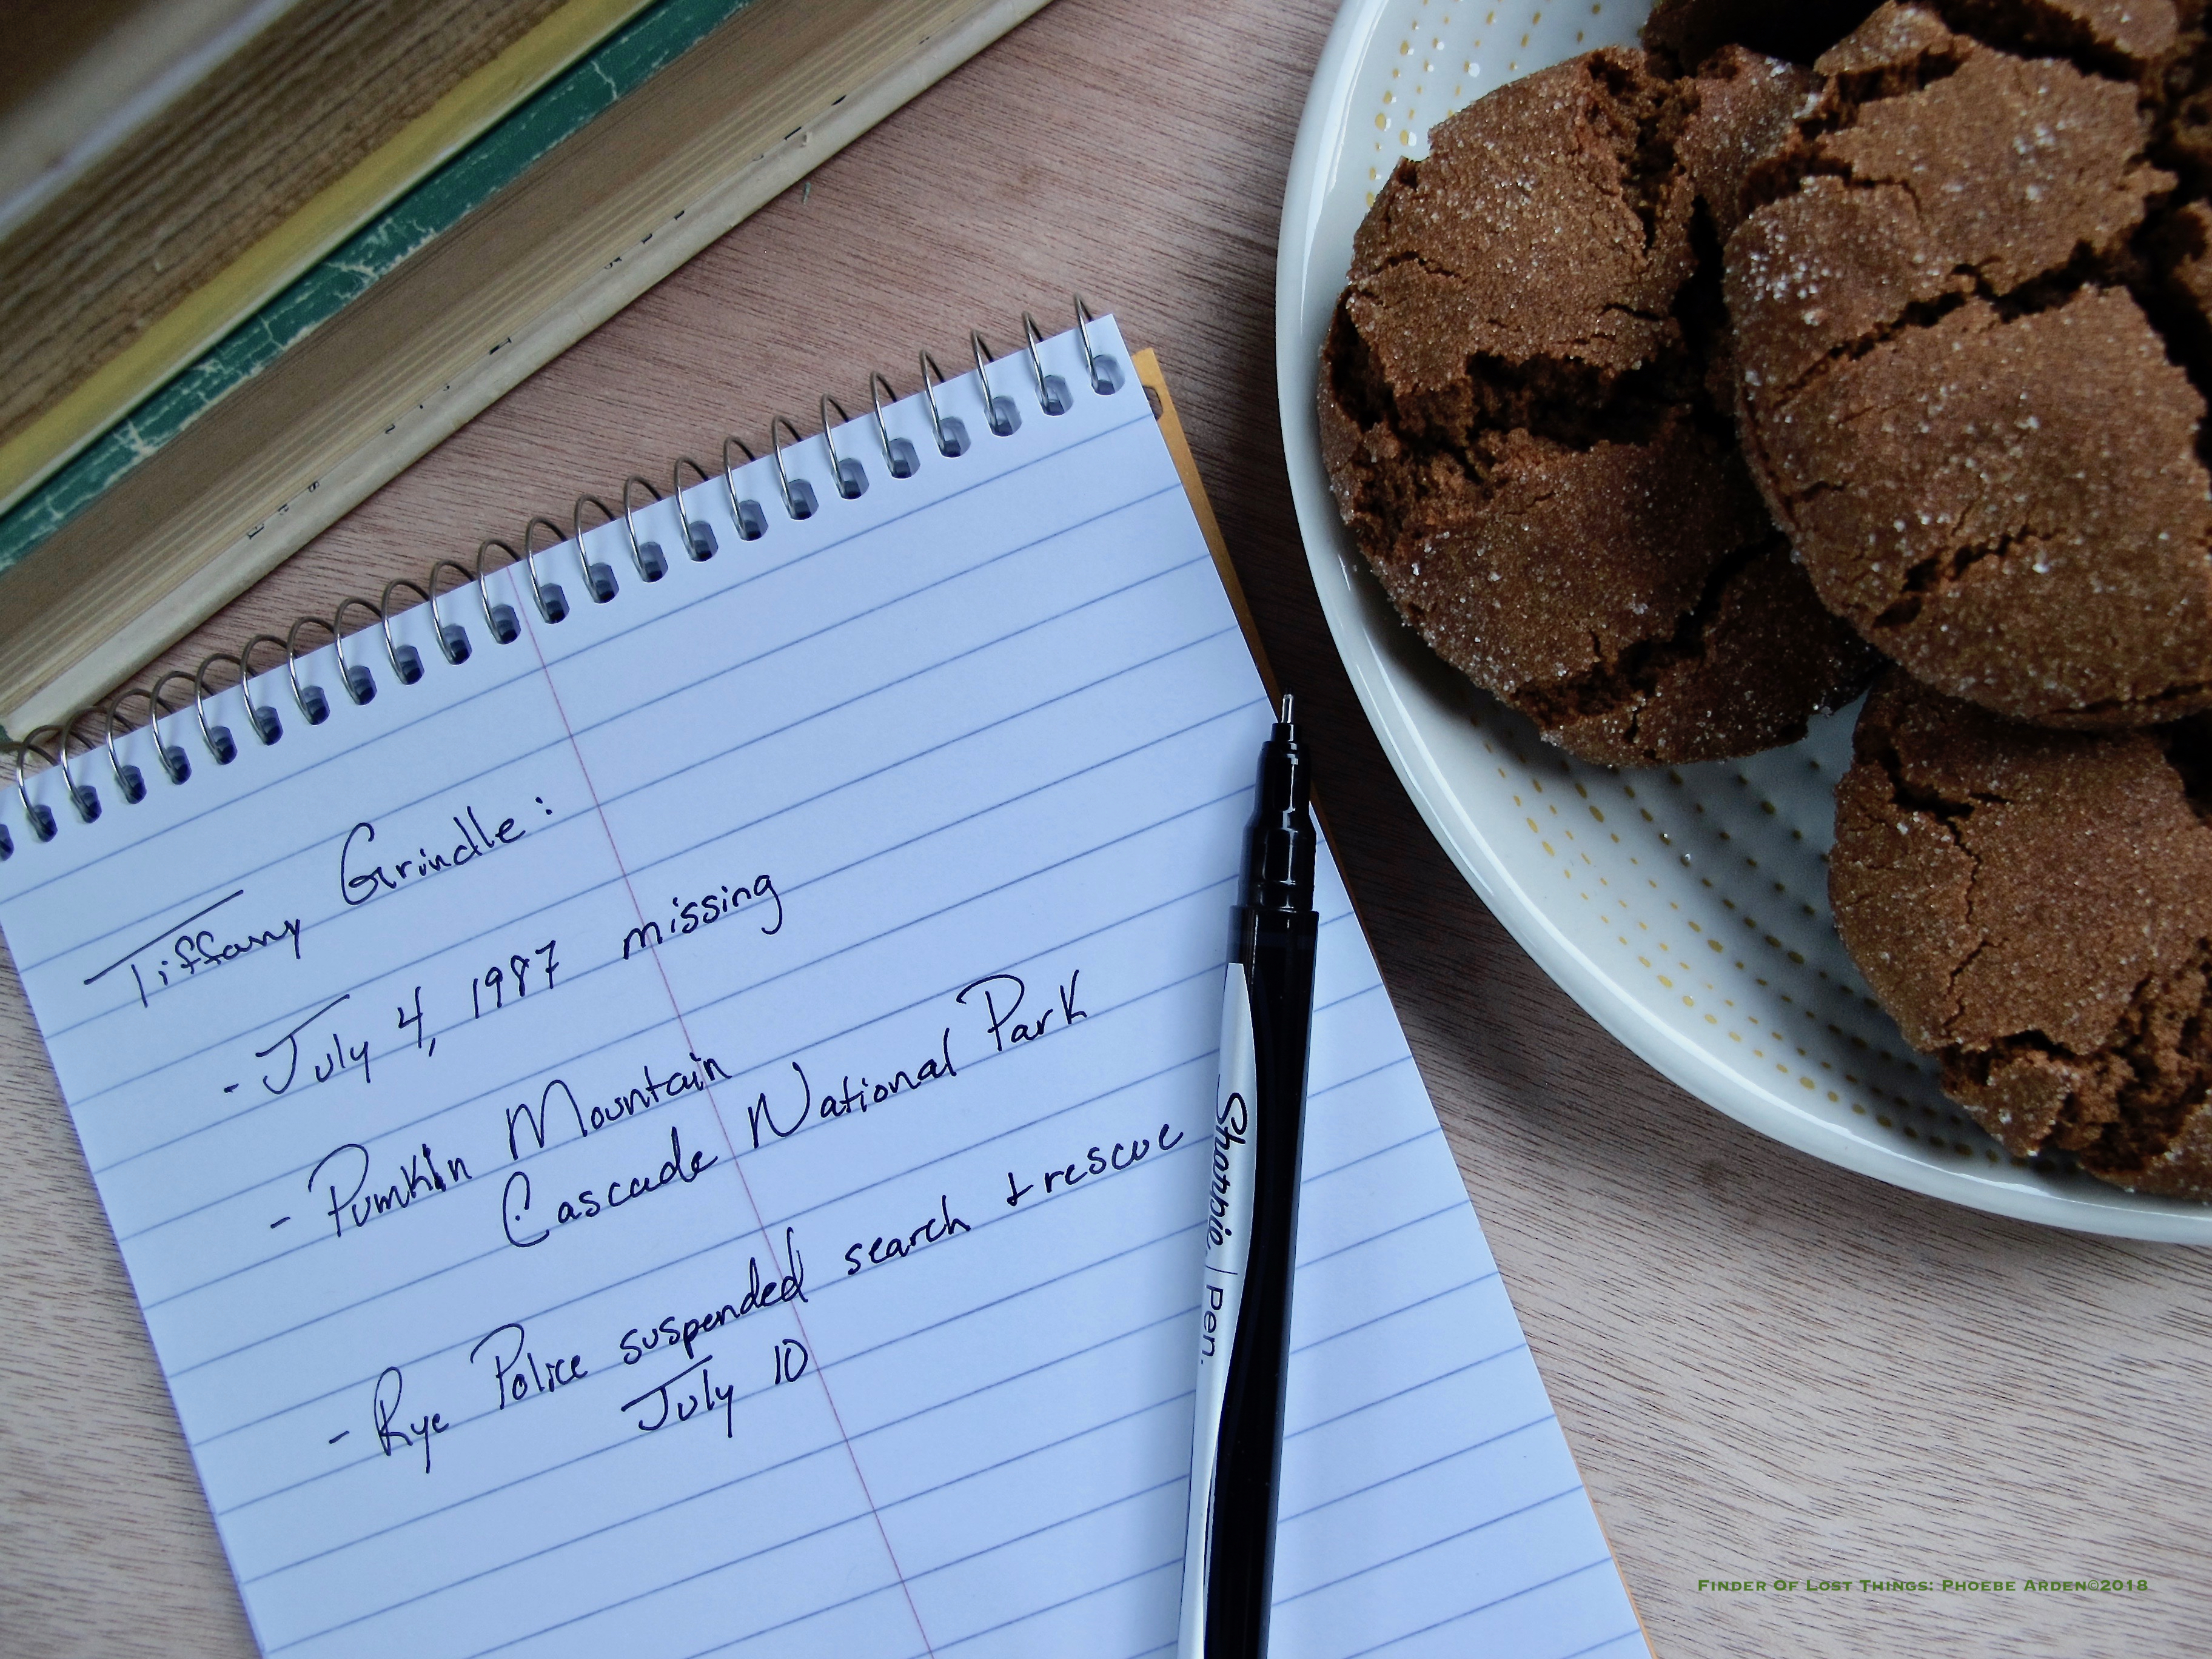 Tiffany Grindle:
- July 4, 1987 missing
- Pumkin Mountain
Cascade National Park
- Rye Police suspended search & rescue
July 10
Sharpie | Pen.
FINDER OF LOST THINGS: PHOEBE ARDEN©2018